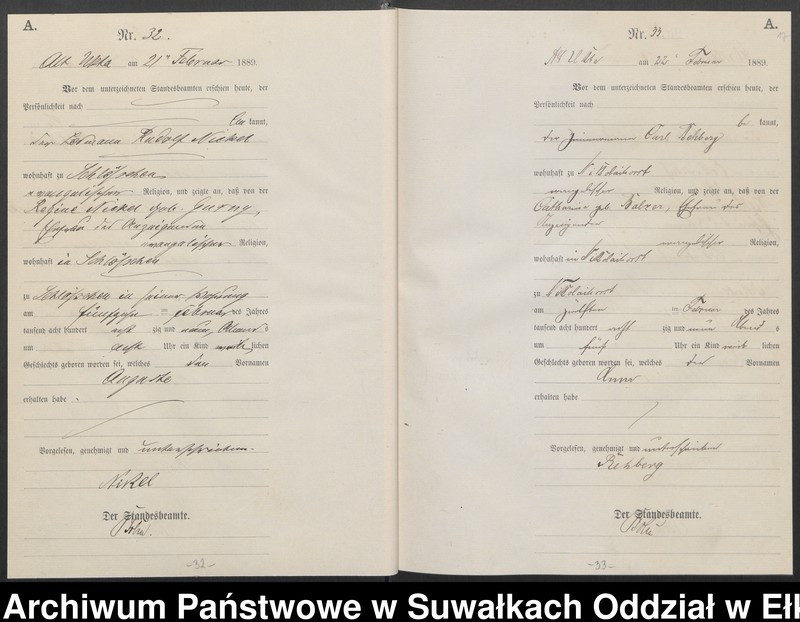 A.
Nr. 32.
Alt Ukta am 21ten Februar 1889.
Vor dem unterzeichneten Standesbeamten erschien heute, der
Persönlichkeit nach
kannt,
der Rudolf Nickel
wohnhaft zu Schlößchen
evangelischer Religion, und zeigte an, daß von der
Regine Nickel geb.
Ehefrau des Anzeigenden
evangelischer Religion,
wohnhaft in Schlößchen
zu Schlößchen in seiner Wohnung
am fünfzehn ten Februar des Jahres
tausend acht hundert acht zig und neun, Abends
um acht Uhr ein Kind weiblichen
Geschlechts geboren worden sei, welches den Vornamen
Auguste
erhalten habe.
Vorgelesen, genehmigt und unterschrieben.
Nikel
Der Standesbeamte.
-32-
A.
Nr. 33
Alt Ukta am 22ten Februar 1889.
Vor dem unterzeichneten Standesbeamten erschien heute, der
Persönlichkeit nach
be kannt,
der Zimmermann Carl Rehberg
wohnhaft zu Nikolaihorst
evangelischer Religion, und zeigte an, daß von der
Catharine geb. Ehefrau des
Anzeigenden
evangelischer Religion,
wohnhaft in Nikolaihorst
zu Nikolaihorst
am zwölften ten Februar des Jahres
tausend acht hundert acht zig und neun Abends
um fünf Uhr ein Kind weiblichen
Geschlechts geboren worden sei, welches den Vornamen
Anna
erhalten habe
Vorgelesen, genehmigt und unterschrieben
Rehberg
Der Standesbeamte.
-33-
Archiwum Państwowe w Suwałkach Oddział w Ełk